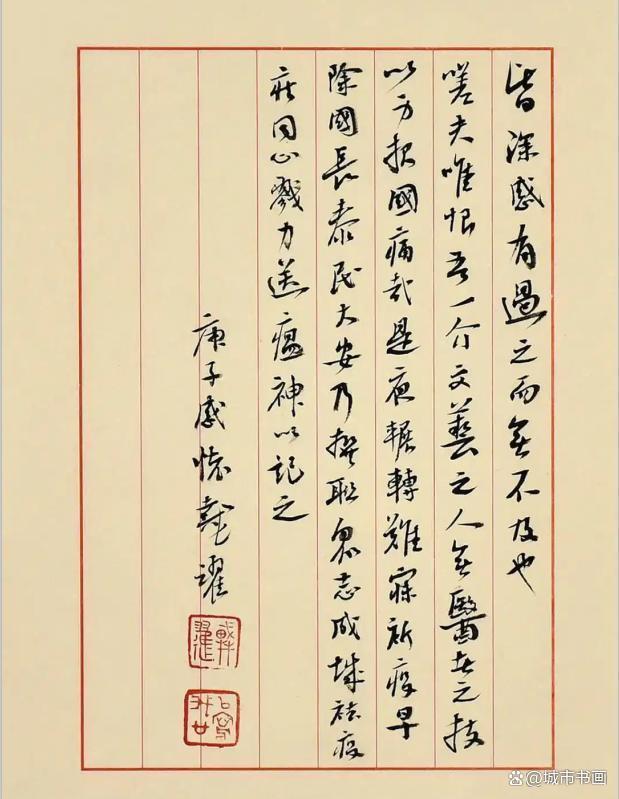 皆深感有過之而無不及也
嗟夫唯恨吾一介文藝之人無醫者之技
以方报國痛哉是夜輾轉難寐祈疫早
除國長泰民大安乃撰联眾志成城祛疫
疾同心戮力送瘟神以記之
庚子感懷戴躍
@城市书画